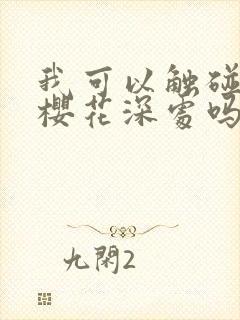 我可以触碰
樱花深处吗
九閑2